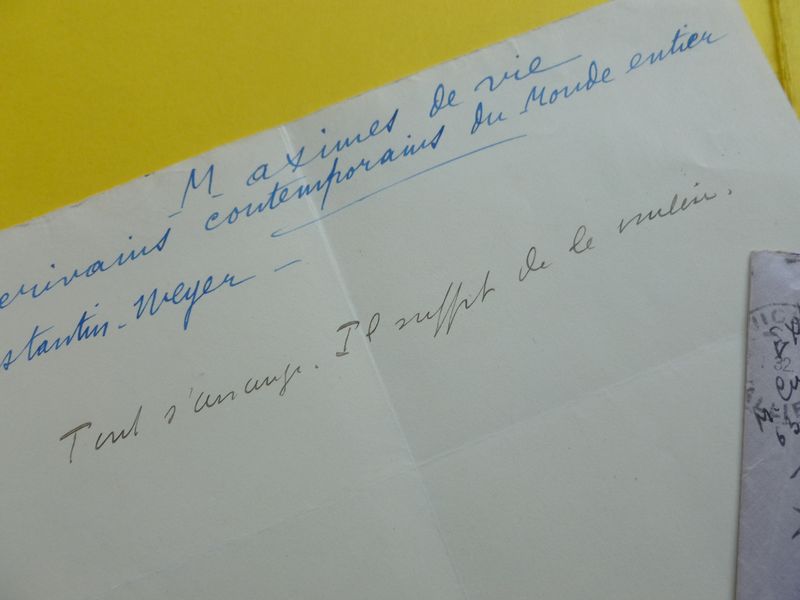 Maximes de vie
crivains contemporains du Monde entier
stantin-Weyer -
Tout s'arrange. Il suffit de le vouloir.